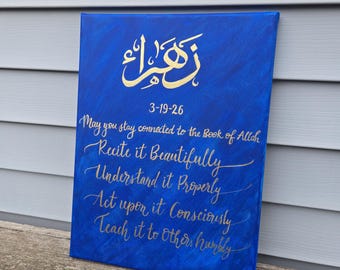 زهراء
3-19-26
May you stay connected to the Book of Allah
Recite it Beautifully
Understand it Properly
Act upon it Consciously
Teach it to Others humbly